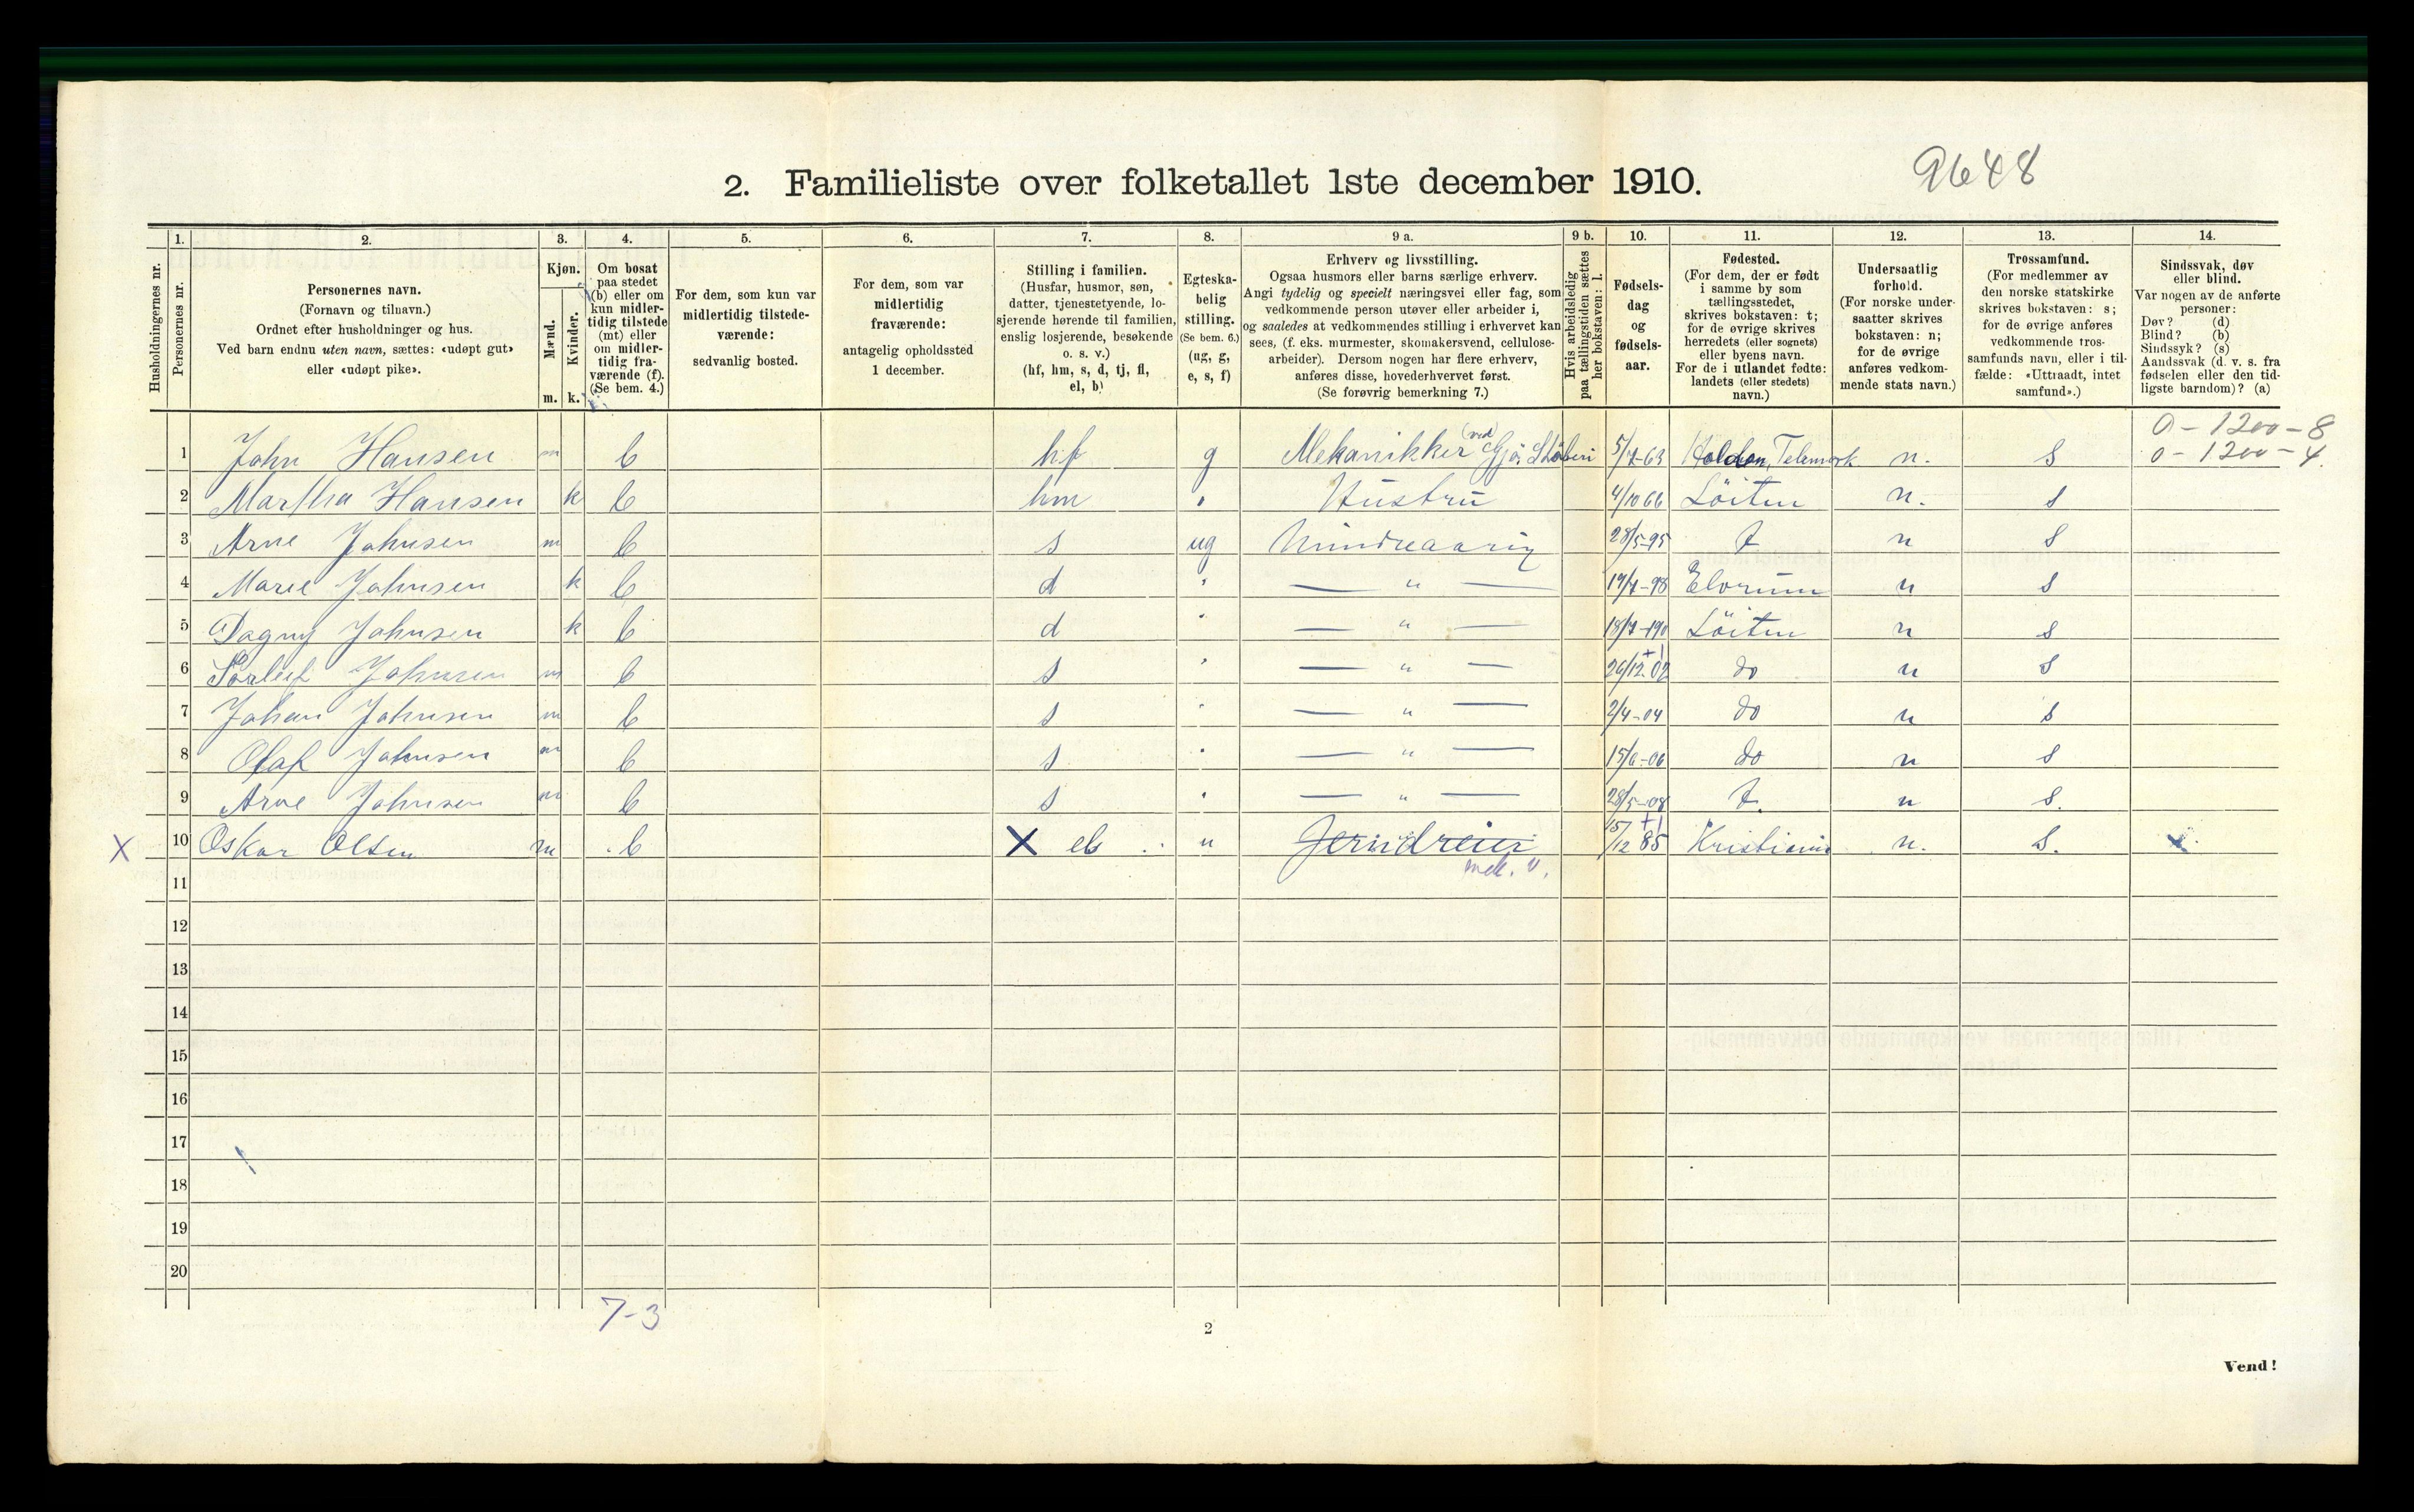 2. Familieliste over folketallet 1ste december 1910.
9648
Husholdningernes nr.
1.
Personernes nr.
2.
Personernes navn.
(Fornavn og tilnavn.)
Ordnet efter husholdninger og hus.
Ved barn endnu uten navn, sættes: «udøpt gut»
eller «udøpt pike».
3.
Kjøn.
Mænd.
Kvinder.
m. k.
4.
Om bosat
paa stedet
(b) eller om
kun midler-
tidig tilstede
(mt) eller
om midler-
tidig fra-
værende (f).
(Se bem. 4.)
5.
For dem, som kun var
midlertidig tilstede-
værende:
sedvanlig bosted.
6.
For dem, som var
midlertidig
fraværende:
antagelig opholdssted
1 december.
7.
Stilling i familien.
(Husfar, husmor, søn,
datter, tjenestetyende, lo-
sjerende hørende til familien,
enslig losjerende, besøkende
o. s. v.)
(hf, hm, s, d, tj, fl,
el, b)
8.
Egteska-
belig
stilling.
(Se bem. 6.)
(ug, g,
e, s, f)
9 a.
Erhverv og livsstilling.
Ogsaa husmors eller barns særlige erhverv.
Angi tydelig og specielt næringsvei eller fag, som
vedkommende person utøver eller arbeider i,
og saaledes at vedkommendes stilling i erhvervet kan
sees, (f. eks. murmester, skomakersvend, cellulose-
arbeider). Dersom nogen har flere erhverv,
anføres disse, hovederhvervet først.
(Se forøvrig bemerkning 7.)
9 b.
Hvis arbeidsledig
paa tællingstiden sættes
her bokstaven: l.
10.
Fødsels-
dag
og
fødsels-
aar.
11.
Fødested.
(For dem, der er født
i samme by som
tællingsstedet,
skrives bokstaven: t;
for de øvrige skrives
herredets (eller sognets)
eller byens navn.
For de i utlandet fødte:
landets (eller stedets)
navn.)
12.
Undersaatlig
forhold.
(For norske under-
saatter skrives
bokstaven: n;
for de øvrige
anføres vedkom-
mende stats navn.)
13.
Trossamfund.
(For medlemmer av
den norske statskirke
skrives bokstaven: s;
for de øvrige anføres
vedkommende tros-
samfunds navn, eller i til-
fælde: «Uttraadt, intet
samfund».)
14.
Sindssvak, døv
eller blind.
Var nogen av de anførte
personer:
Døv? (d)
Blind? (b)
Sindssyk? (s)
Aandssvak (d. v. s. fra
fødselen eller den tid-
ligste barndom)? (a)
0 - 1200 - 8
1 John Hansen m b hf g Mekanikker (ved) 5/7-63 Holden, Telemark n. s 0 - 1200 - 4.
2 Martha Hansen k b hm " Hustru 4/10 66 Löiten n. s
3 Arne Johnsen m b s ug Mindreaarig 28/5-95 t n s
4 Marie Johnsen k b d " — " — 19/7-98 Elvrum n s
5 Dagny Johnsen k b d " — " — 18/7-1901 Löiten n s
6 Torleif Johnsen m b s " — " — 26/12.02 do n s
7 Johan Johnsen m b s " — " — 2/4-04 do n s
8 Olaf Johnsen m b s " — " — 15/6-06 do n s
9 Arne Johnsen m b s " — " — 28/5-08 t. n s.
X 10 Oskar Olsen m b X el " Jerndreier 15/12 85 Kristiania n. s. x
mek. v.
11
12
13
14
15
16
17
18
19
20
7-3
2
Vend!